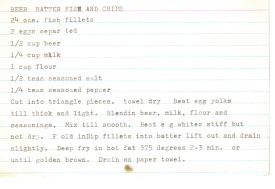 BEER BATTER FISH AND CHIPS
24 ozs. fish fillets
2 eggs separ ted
1/2 cup beer
1/4 cup milk
1 cup flour
1/2 teas seasoned salt
1/4 teas seasoned pepper
Cut into triangle pieces. towel dry Beat egg yolks
till thick and light. Blendin beer, milk, flour and
seasonings. Mix till smooth. Beat e g whites stiff but
not dry. F old inDip fillets into batter lift out and drain
slightly. Deep fry in hot fat 375 degrees 2-3 min. or
until golden brown. Drain on paper towel.